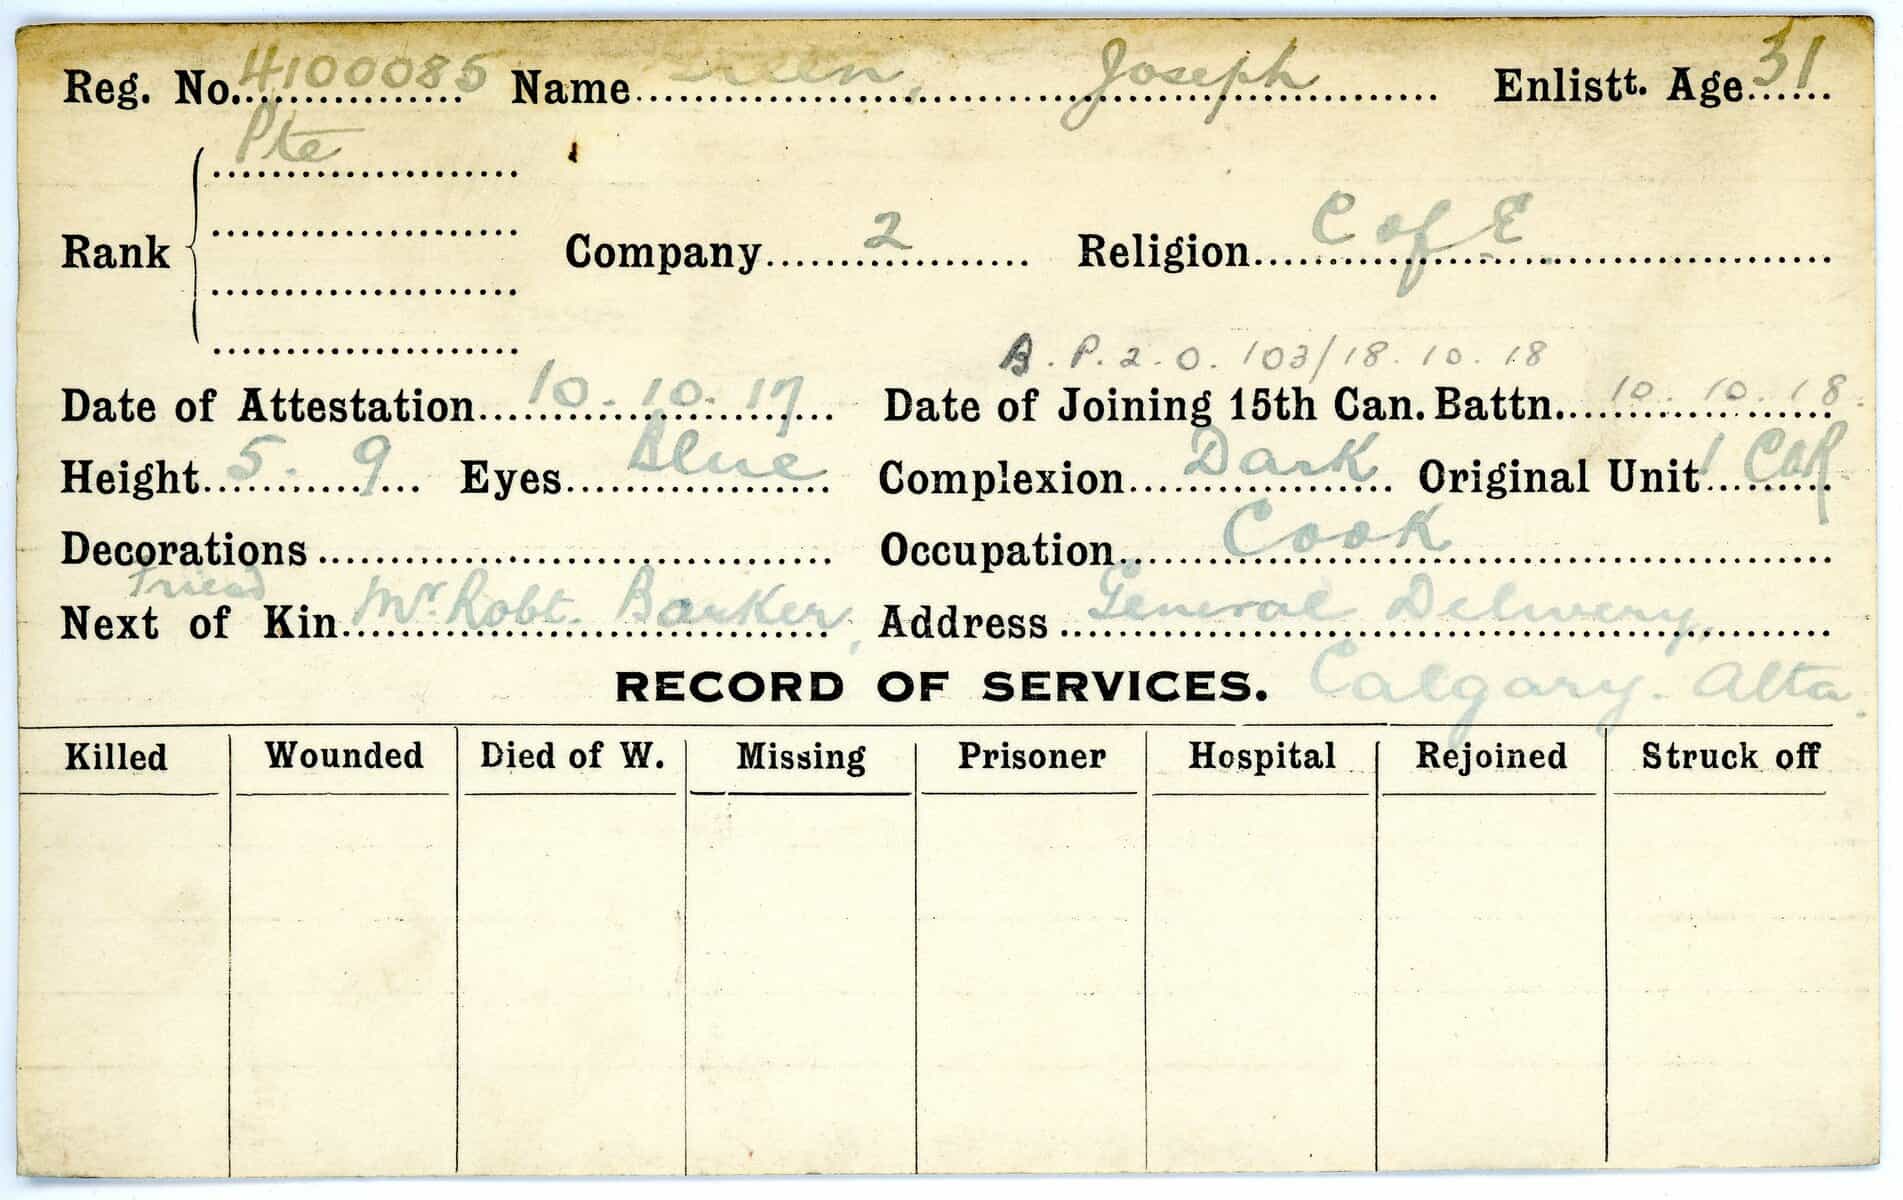 Reg. No. 4100085 Name Green, Joseph Enlistt. Age 31
Pte
Rank Company 2 Religion C of E
B. P. 2. O. 103/18. 10. 18
Date of Attestation 10. 10. 17 Date of Joining 15th Can. Battn. 10. 10. 18.
Height 5. 9 Eyes Blue Complexion Dark Original Unit 1 COR
Decorations Occupation Cook
Friend
Next of Kin Mr. Robt. Barker, Address General Delivery,
RECORD OF SERVICES. Calgary. Alta.
Killed Wounded Died of W. Missing Prisoner Hospital Rejoined Struck off